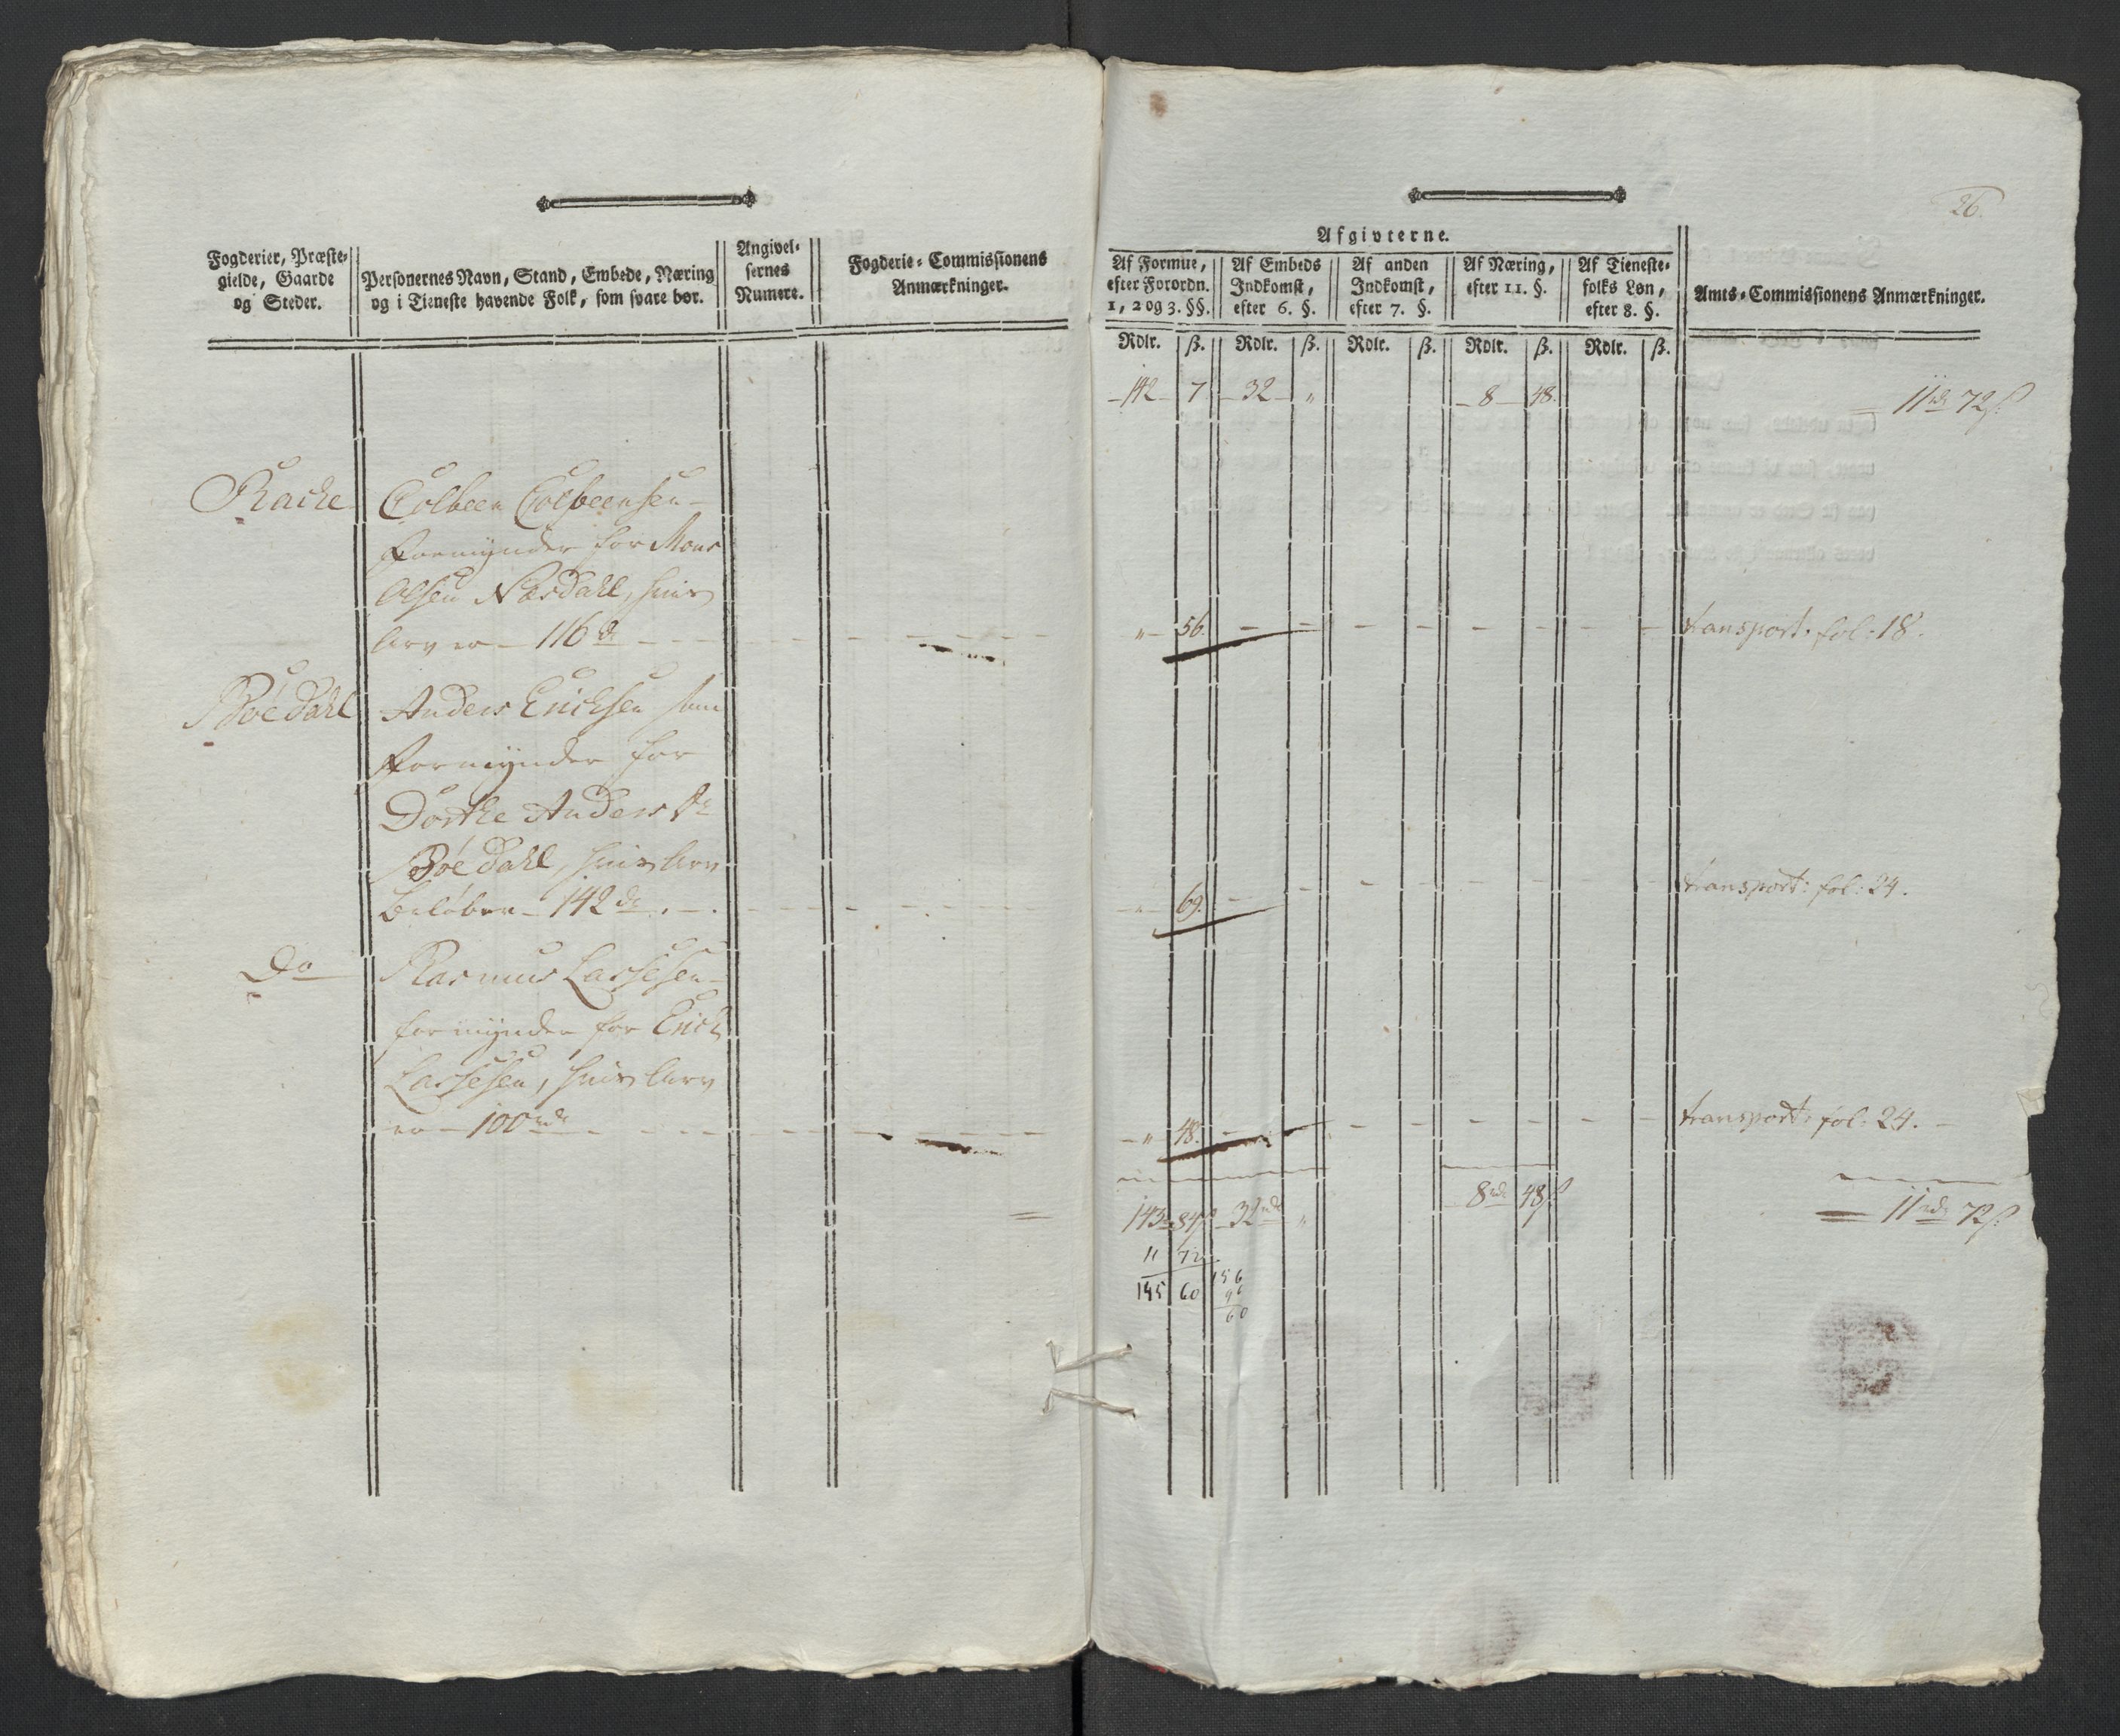 26.
Fogderier, Præste-
gielde, Gaarde
og Steder.
Personernes Navn, Stand, Embede, Næring
og i Tieneste havende Folk, som svare bør.
Angivel-
sernes
Numere.
Fogderie-Commissionens
Anmærkninger.
Afgivterne.
Af Formue,
efter Forordn.
1, 2 og 3. §§.
Af Embeds
Indkomst,
efter 6. §.
Af anden
Indkomst,
efter 7. §.
Af Næring,
efter 11. §.
Af Tieneste-
folks Løn,
efter 8. §.
Amts-Commissionens Anmærkninger.
Rdlr. ß. Rdlr. ß. Rdlr. ß. Rdlr. ß. Rdlr. ß.
142 7. 32 „ 8 48. 11 rd 72 ß.
Racke Colbeen Colbeensen
Formynder for Mons
Olsen Næsdahl, hvis
Arv er 116 d „ 56. transport. fol: 18.
Bøedahl Anders Ericksen som
Formynder for
Dorthe Anders Dr
Bøedahl, hvis Arv
beløber 142 d „ 69. transport: fol: 24.
Do Rasmus Lassesen
formynder for Erick
Lassesen, hvis Arv
er 100 rd „ 48. transport: fol: 24.
143 84 ß 32 rd „ 8 rd 48 ß 11 rd 72 ß.
11 72
155 60 156
96
60